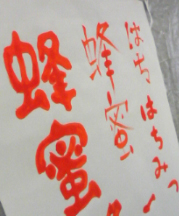 はちはちみつ
蜂蜜
蜂蜜